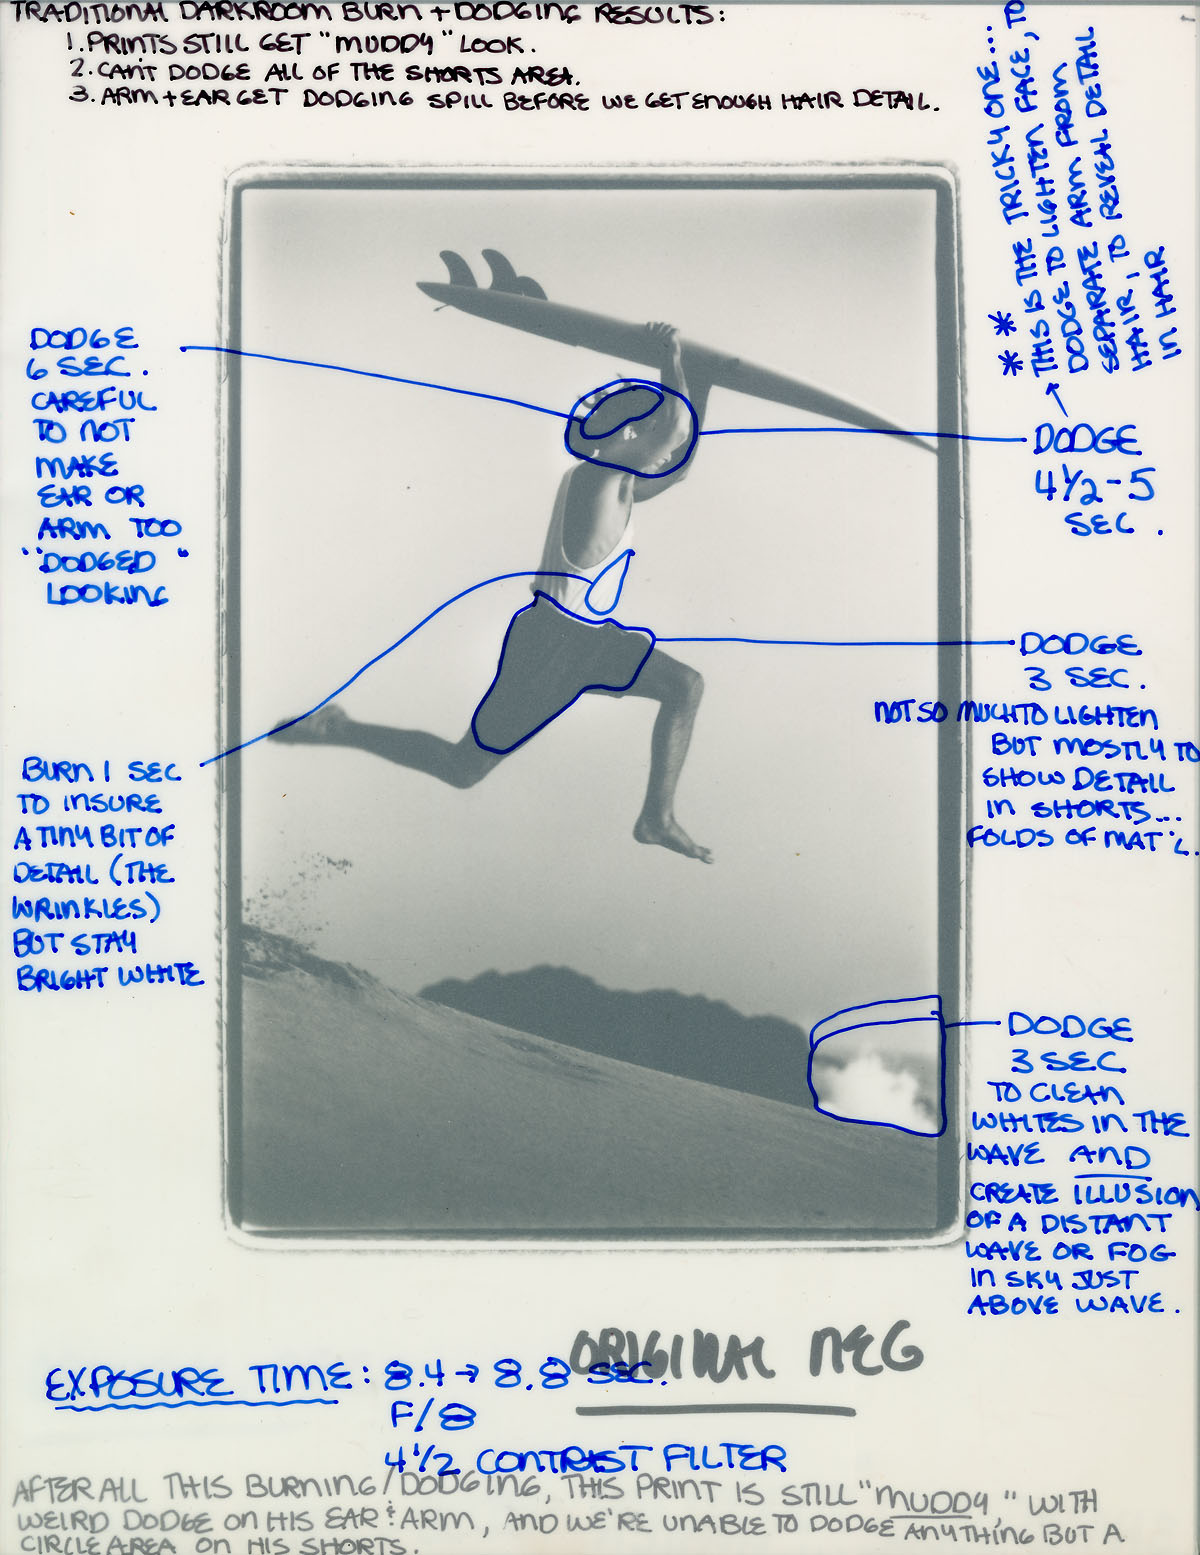 TRADITIONAL DARKROOM BURN + DODGING RESULTS:
1. PRINTS STILL GET "MUDDY" LOOK.
2. CAN'T DODGE ALL OF THE SHORTS AREA.
3. ARM + EAR GET DODGING SPILL BEFORE WE GET ENOUGH HAIR DETAIL.
** THIS IS THE TRICKY ONE...
DODGE TO LIGHTEN FACE, TO
SEPARATE ARM FROM
HAIR, TO REVEAL DETAIL
IN HAIR
DODGE
6 SEC.
CAREFUL
TO NOT
MAKE
EAR OR
ARM TOO
"DODGED"
LOOKING
DODGE
4 1/2-5
SEC.
DODGE
3 SEC.
NOT SO MUCH TO LIGHTEN
BUT MOSTLY TO
SHOW DETAIL
IN SHORTS...
FOLDS OF MAT'L.
BURN 1 SEC
TO INSURE
A TINY BIT OF
DETAIL (THE
WRINKLES)
BUT STAY
BRIGHT WHITE
DODGE
3 SEC
TO CLEAN
WHITES IN THE
WAVE AND
CREATE ILLUSION
OF A DISTANT
WAVE OR FOG
IN SKY JUST
ABOVE WAVE.
ORIGINAL NEG
EXPOSURE TIME: 8.4 → 8.8 SEC.
F/8
4 1/2 CONTRAST FILTER
AFTER ALL THIS BURNING/DODGING, THIS PRINT IS STILL "MUDDY" WITH
WEIRD DODGE ON HIS EAR & ARM, AND WE'RE UNABLE TO DODGE ANYTHING BUT A
CIRCLE AREA ON HIS SHORTS.